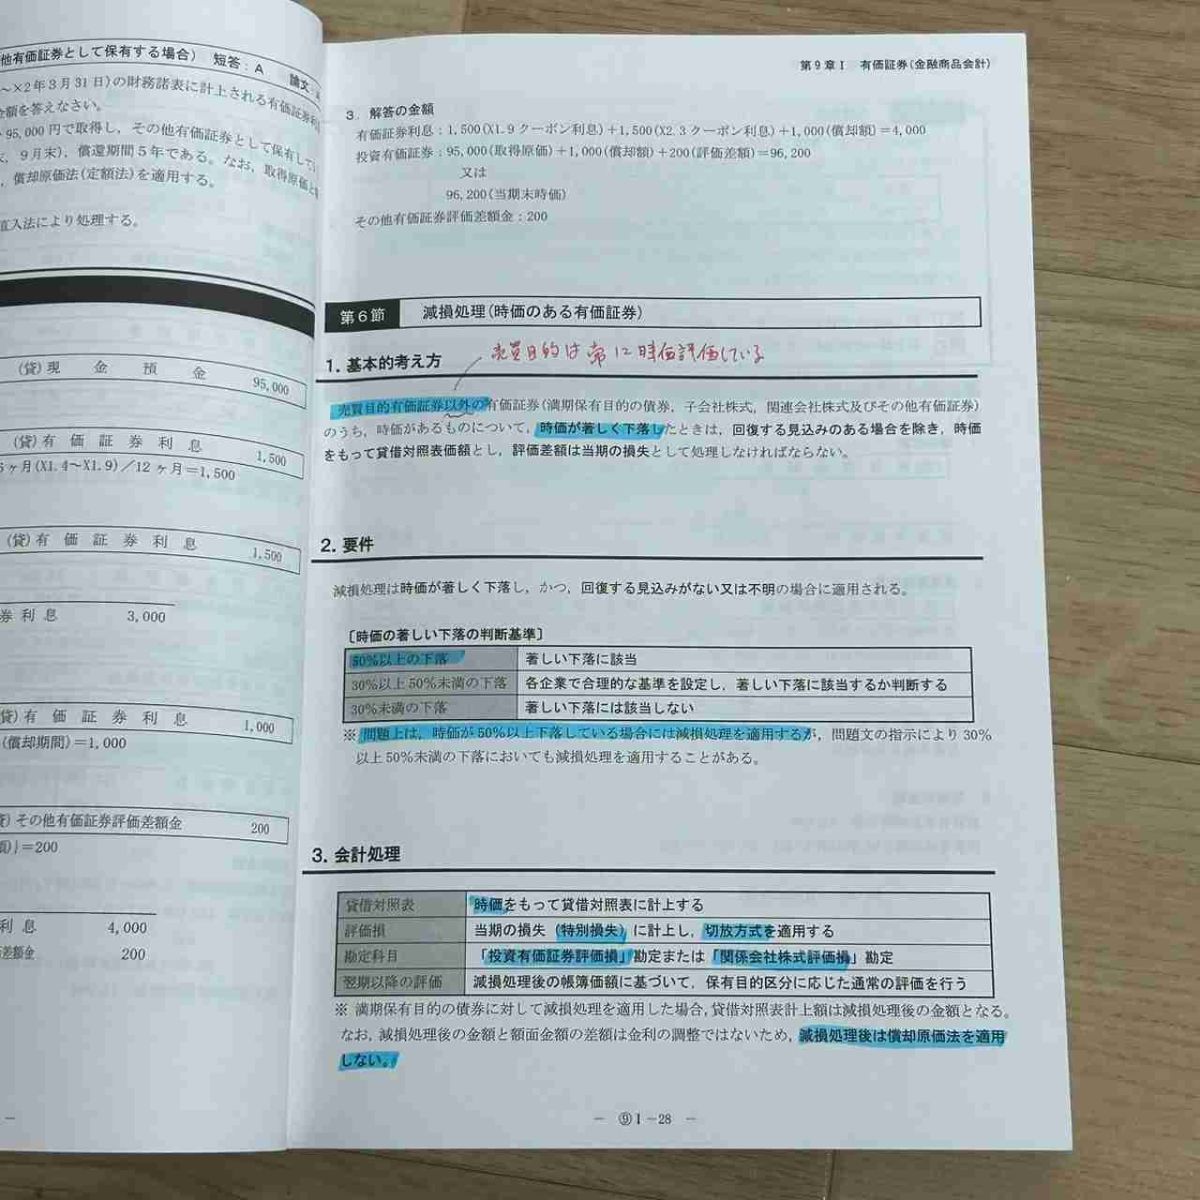 他有価証券として保有する場合) 短答：A 論文：
～×2年3月31日)の財務諸表に計上される有価証券利
金額を答えなさい。
95,000円で取得し、その他有価証券として保有してい
9月末)，償還期間5年である。なお，取得原価と
，償却原価法(定額法)を適用する。
直入法により処理する。
(貸)現 金 預 金 95,000
(貸)有 価 証 券 利 息 1,500
6ヶ月(X1.4～X1.9)／12ヶ月＝1,500
(貸)有 価 証 券 利 息 1,500
券 利 息 3,000
貸)有 価 証 券 利 息 1,000
(償却期間)＝1,000
貸)その他有価証券評価差額金 200
＝200
利 息 4,000
差額金 200
第9章Ⅰ 有価証券(金融商品会計)
3．解答の金額
有価証券利息：1,500(X1.9クーポン利息)＋1,500(X2.3クーポン利息)＋1,000(償却額)＝4,000
投資有価証券：95,000(取得原価)＋1,000(償却額)＋200(評価差額)＝96,200
又は
96,200(当期末時価)
その他有価証券評価差額金：200
第6節 減損処理(時価のある有価証券)
売買目的は常に時価評価している
1. 基本的考え方
売買目的有価証券以外の有価証券(満期保有目的の債券，子会社株式，関連会社株式及びその他有価証券)
のうち，時価があるものについて，時価が著しく下落したときは，回復する見込みのある場合を除き，時価
をもって貸借対照表価額とし，評価差額は当期の損失として処理しなければならない。
2. 要件
減損処理は時価が著しく下落し，かつ，回復する見込みがない又は不明の場合に適用される。
〔時価の著しい下落の判断基準〕
50%以上の下落 著しい下落に該当
30%以上50%未満の下落 各企業で合理的な基準を設定し，著しい下落に該当するか判断する
30%未満の下落 著しい下落には該当しない
※ 問題上は，時価が50%以上下落している場合には減損処理を適用するが，問題文の指示により30%
以上50%未満の下落においても減損処理を適用することがある。
3. 会計処理
貸借対照表 時価をもって貸借対照表に計上する
評価損 当期の損失（特別損失）に計上し，切放方式を適用する
勘定科目 「投資有価証券評価損」勘定または「関係会社株式評価損」勘定
翌期以降の評価 減損処理後の帳簿価額に基づいて，保有目的区分に応じた通常の評価を行う
※ 満期保有目的の債券に対して減損処理を適用した場合，貸借対照表計上額は減損処理後の金額となる。
なお，減損処理後の金額と額面金額の差額は金利の調整ではないため，減損処理後は償却原価法を適用
しない。
－ ⑨Ⅰ－28 －